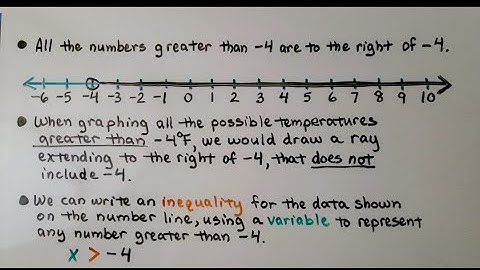 • All the numbers greater than -4 are to the right of -4.
-6 -5 -4 -3 -2 -1 0 1 2 3 4 5 6 7 8 9 10
• When graphing all the possible temperatures
greater than -4°F, we would draw a ray
extending to the right of -4, that does not
include -4.
• We can write an inequality for the data shown
on the number line, using a variable to represent
any number greater than -4.
x > -4